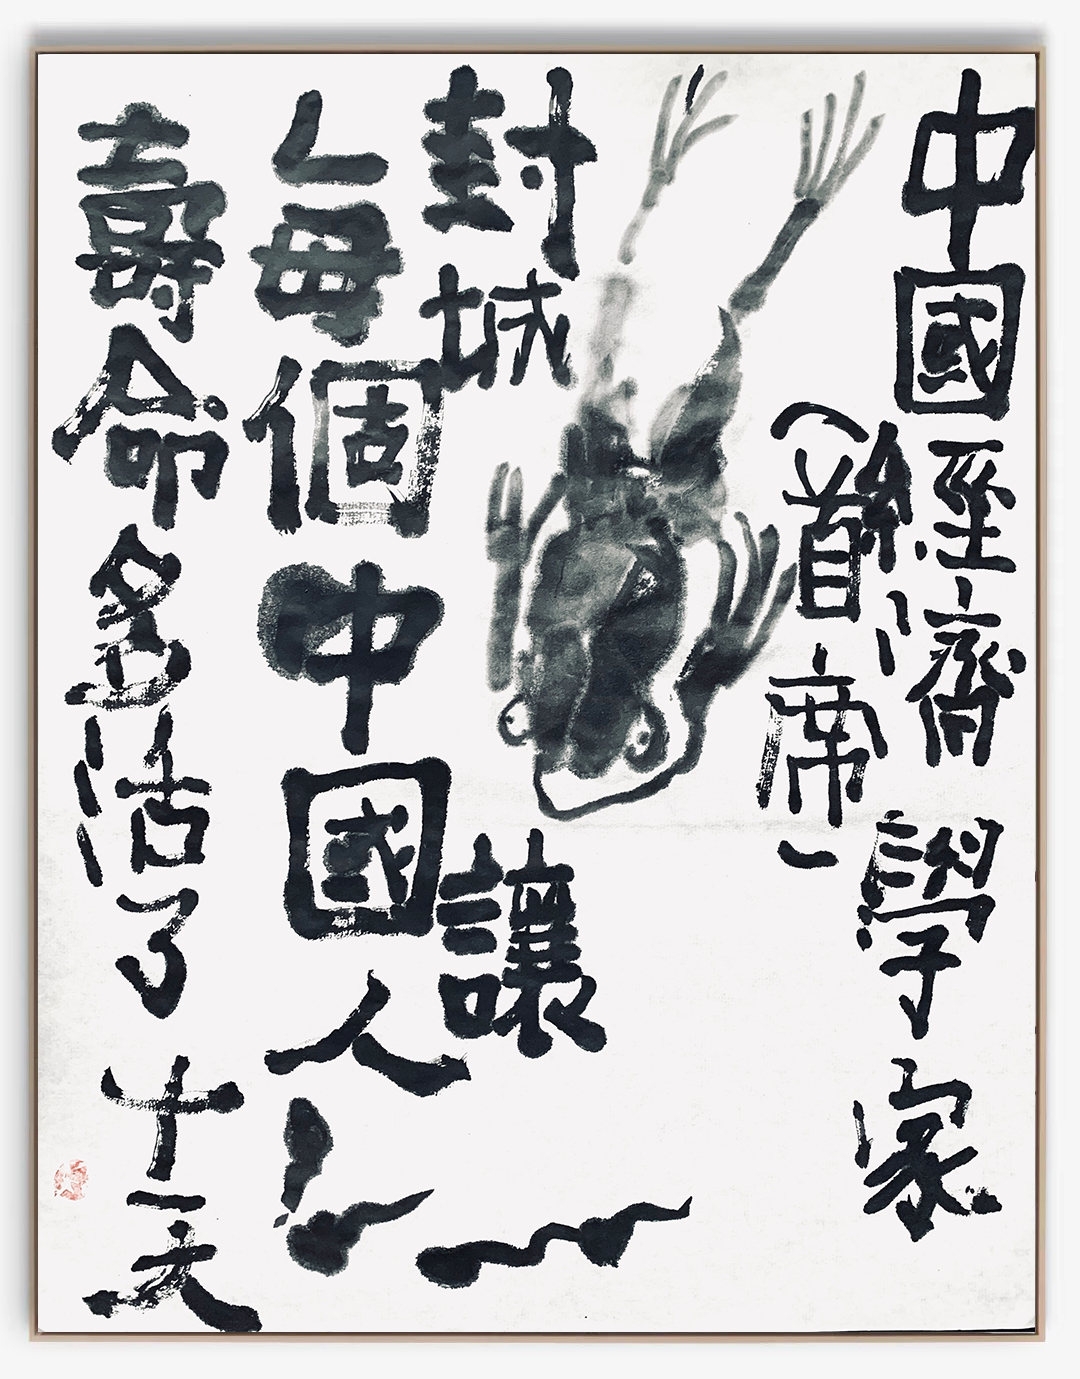 中國經濟學家
（首席）
封城讓
每個中國人
壽命多活了十一天